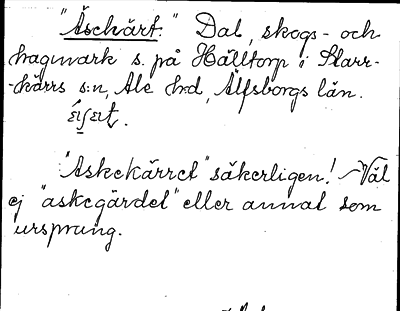 "Äschärt." Dal, skogs- och
hagmark s. på Hälltorp i Starr-
-kärrs s:n, Ale h:d, Älfsborgs län.
"Askekärret" säkerligen! - Väl
ej "askegärdet" eller annat som
ursprung.